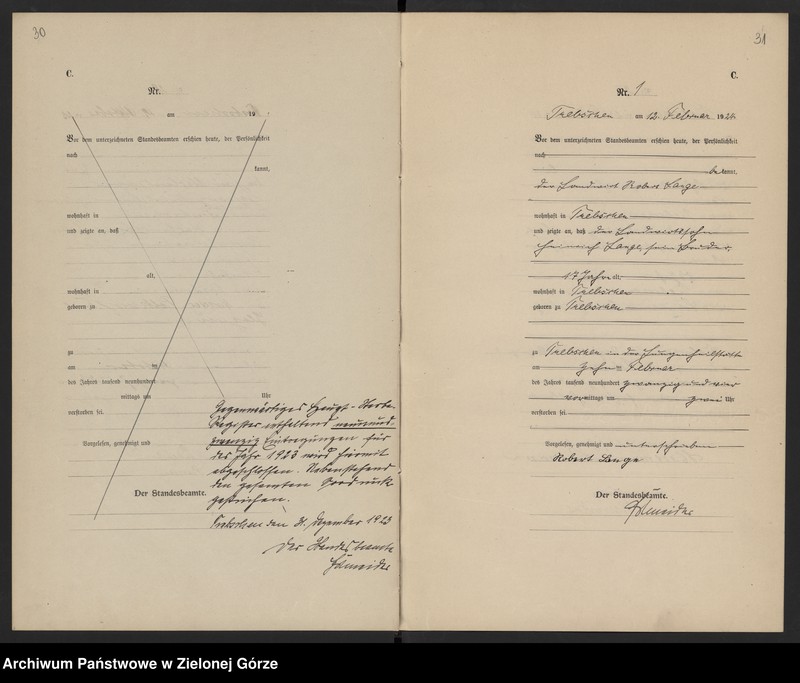 30
C.
Nr.
am 19
Vor dem unterzeichneten Standesbeamten erschien heute, der Persönlichkeit
nach
kannt,
wohnhaft in
und zeigte an, daß
alt,
wohnhaft in
geboren zu
zu
am ten
des Jahres tausend neunhundert
mittags um Uhr
verstorben sei.
Vorgelesen, genehmigt und
Gegenwärtiges Haupt-Sterbe-
Register enthaltend neunund-
zwanzig Eintragungen für
das Jahr 1923 wird hiermit
abgeschlossen. Nebenstehend
den gesamten Vordruck
gestrichen.
Der Standesbeamte.
Trebschen den 31. Dezember 1923
Der Standesbeamte
Schneider
31
C.
Nr. 1
Trebschen am 12. Februar 1924
Vor dem unterzeichneten Standesbeamten erschien heute, der Persönlichkeit
nach
bekannt,
der Landwirt Robert Lange
wohnhaft in Trebschen
und zeigte an, daß der Landwirtssohn
Heinrich Lange, sein Bruder,
17 Jahre alt,
wohnhaft in Trebschen
geboren zu Trebschen
zu Trebschen in der Lungenheilstätte
am zehnten Februar
des Jahres tausend neunhundert zwanzig und vier
vormittags um zwei Uhr
verstorben sei.
Vorgelesen, genehmigt und unterschrieben
Robert Lange
Der Standesbeamte.
Schneider
Archiwum Państwowe w Zielonej Górze